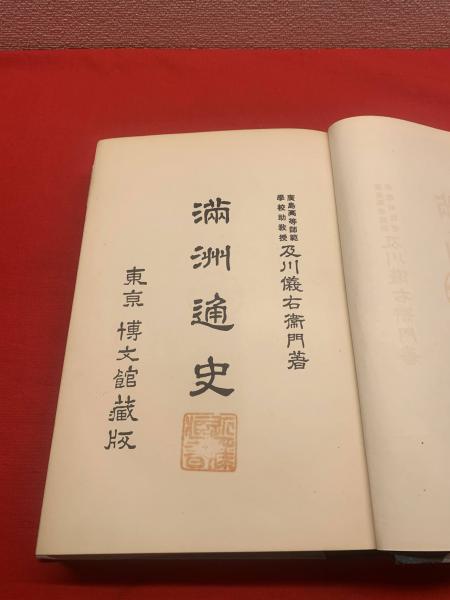 廣島高等師範
學校助教授
及川儀右衞門著
滿洲通史
東京 博文館藏版